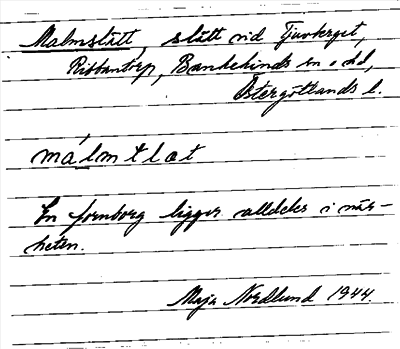 Malmslätt, slätt vid Tjuvberget,
Ribbantorp, Bankekinds sn o hd,
Östergötlands l.
målmtlæt
En fornborg ligger alldeles i när-
heten.
Maja Nordlund 1944.